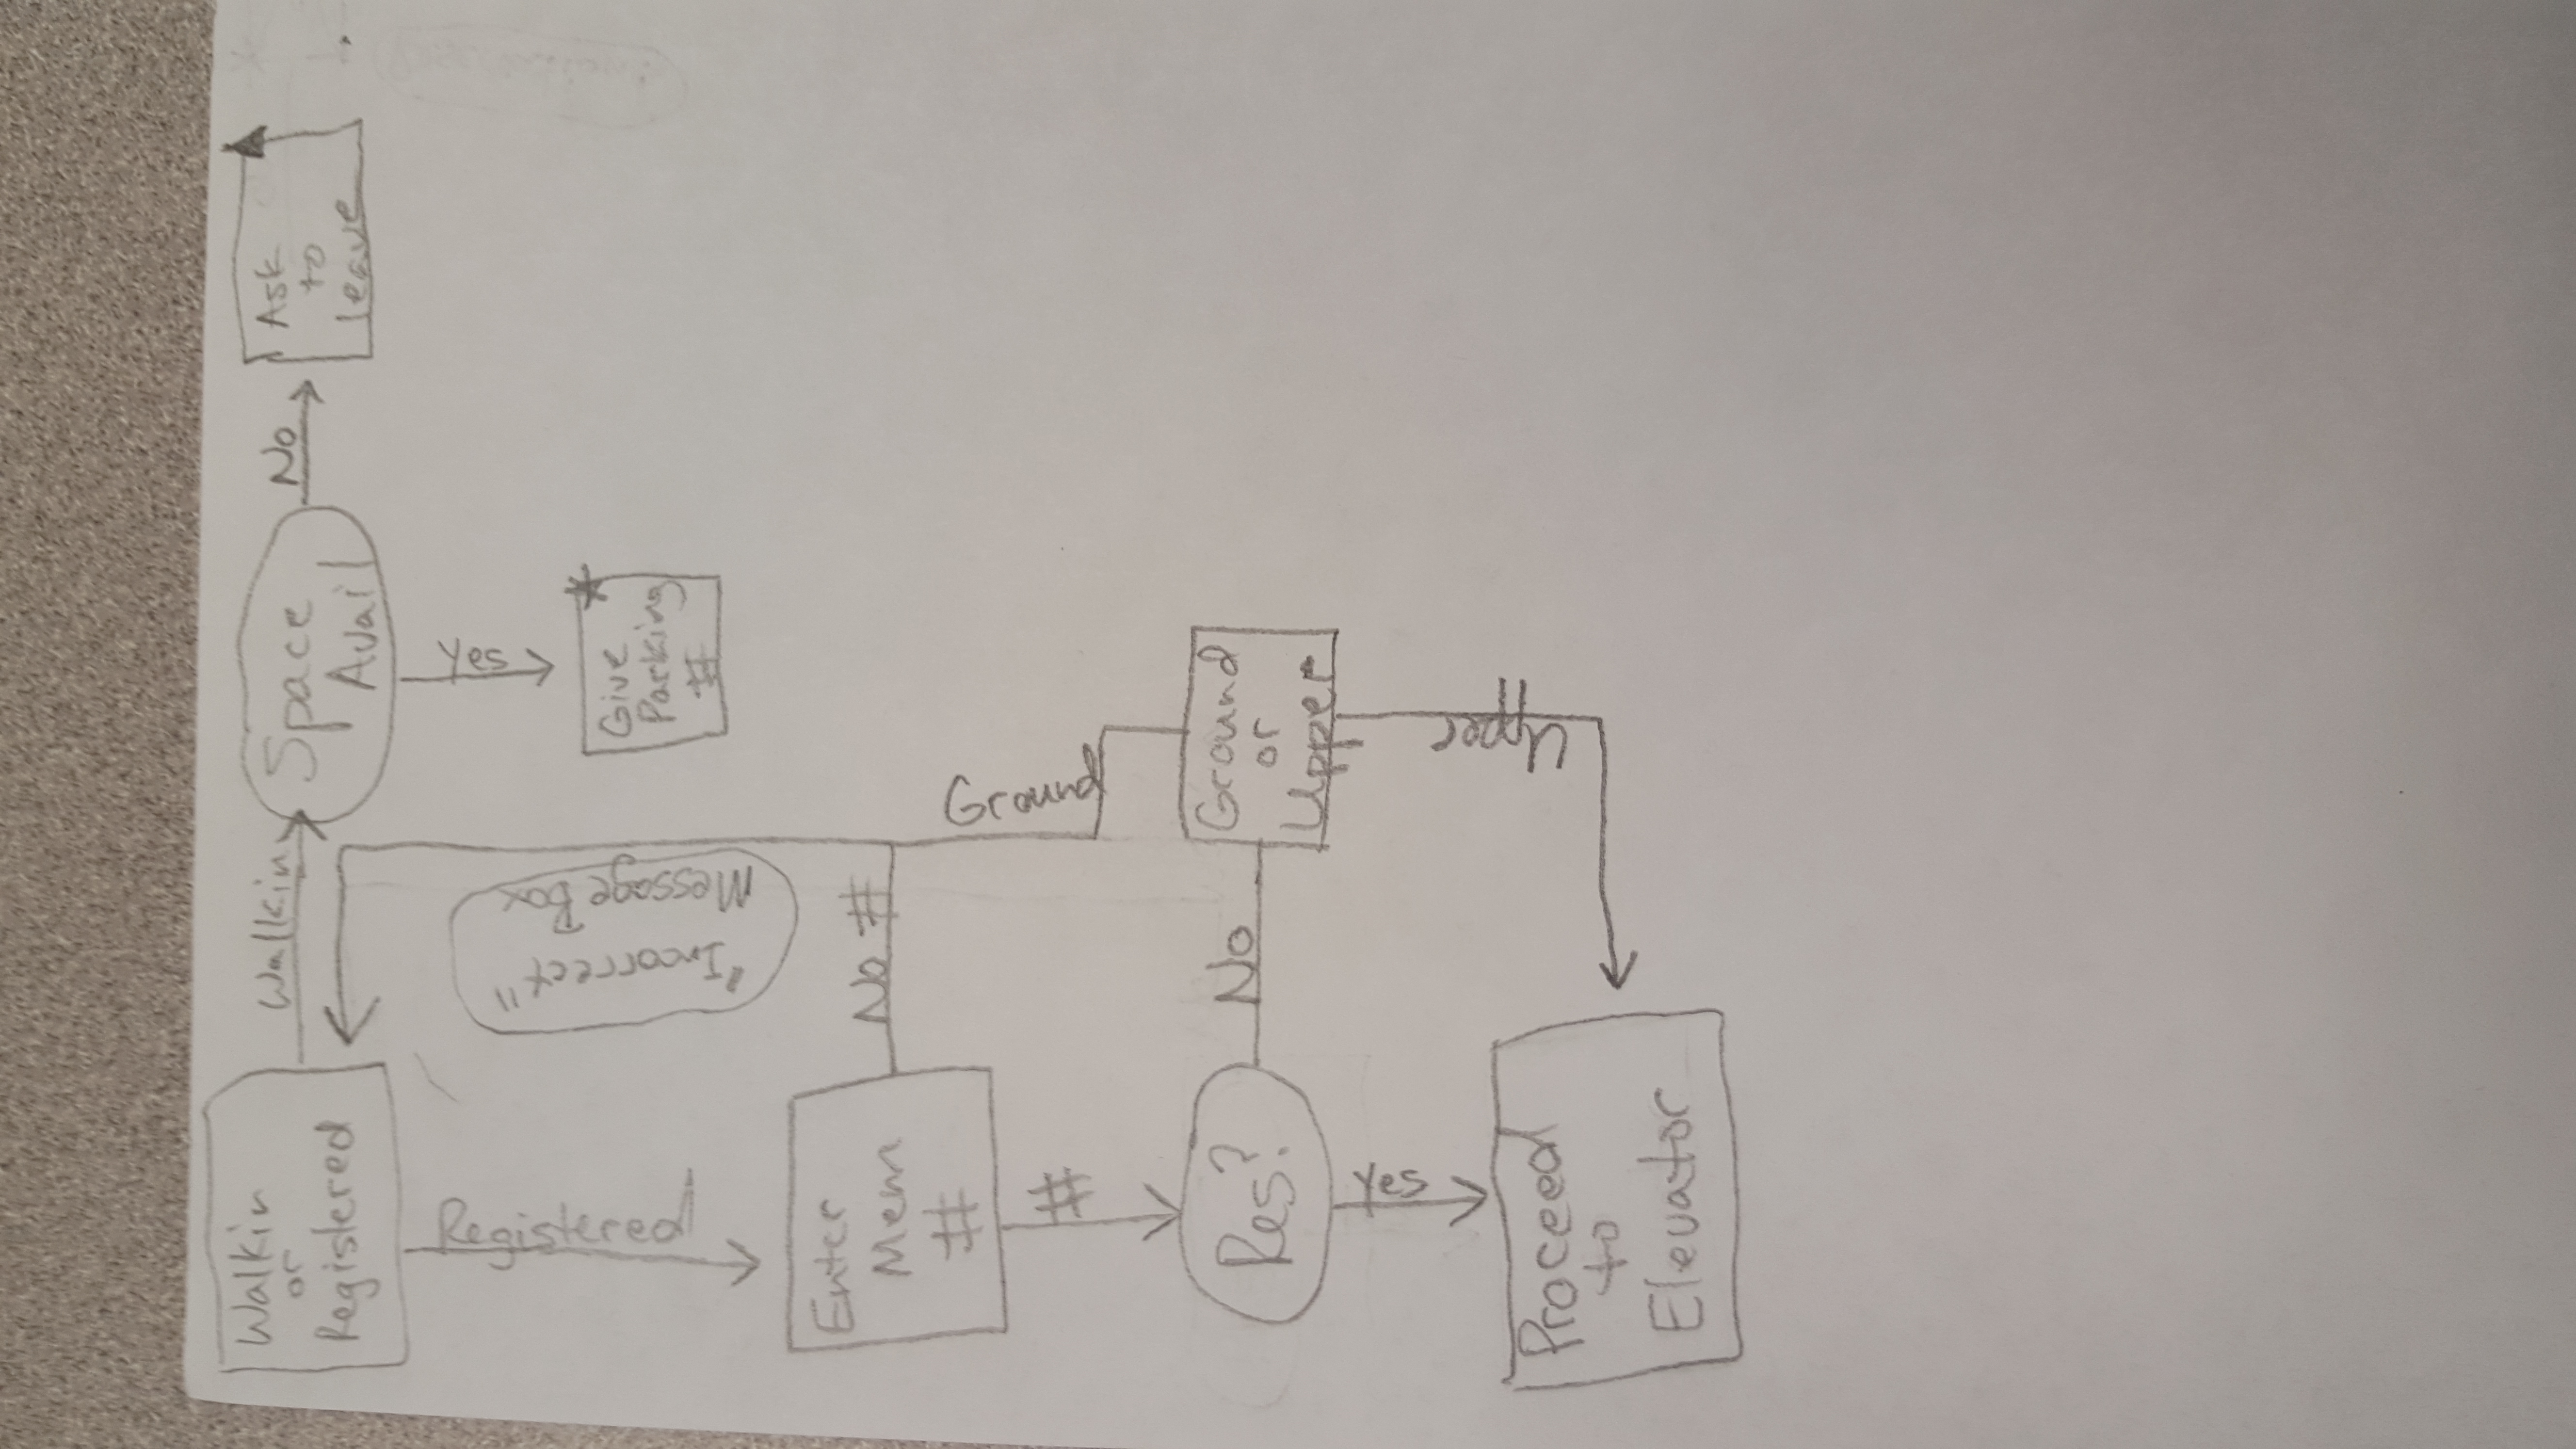 Walkin
or
Registered
Walkin
Space
Avail
No
Ask
to
leave
Registered
"Incorrect"
Message Box
Yes
Give
Parking
#
Enter
Mem
#
No #
Ground
#
Res?
No
Ground
or
Upper
Yes
Upper
Proceed
to
Elevator